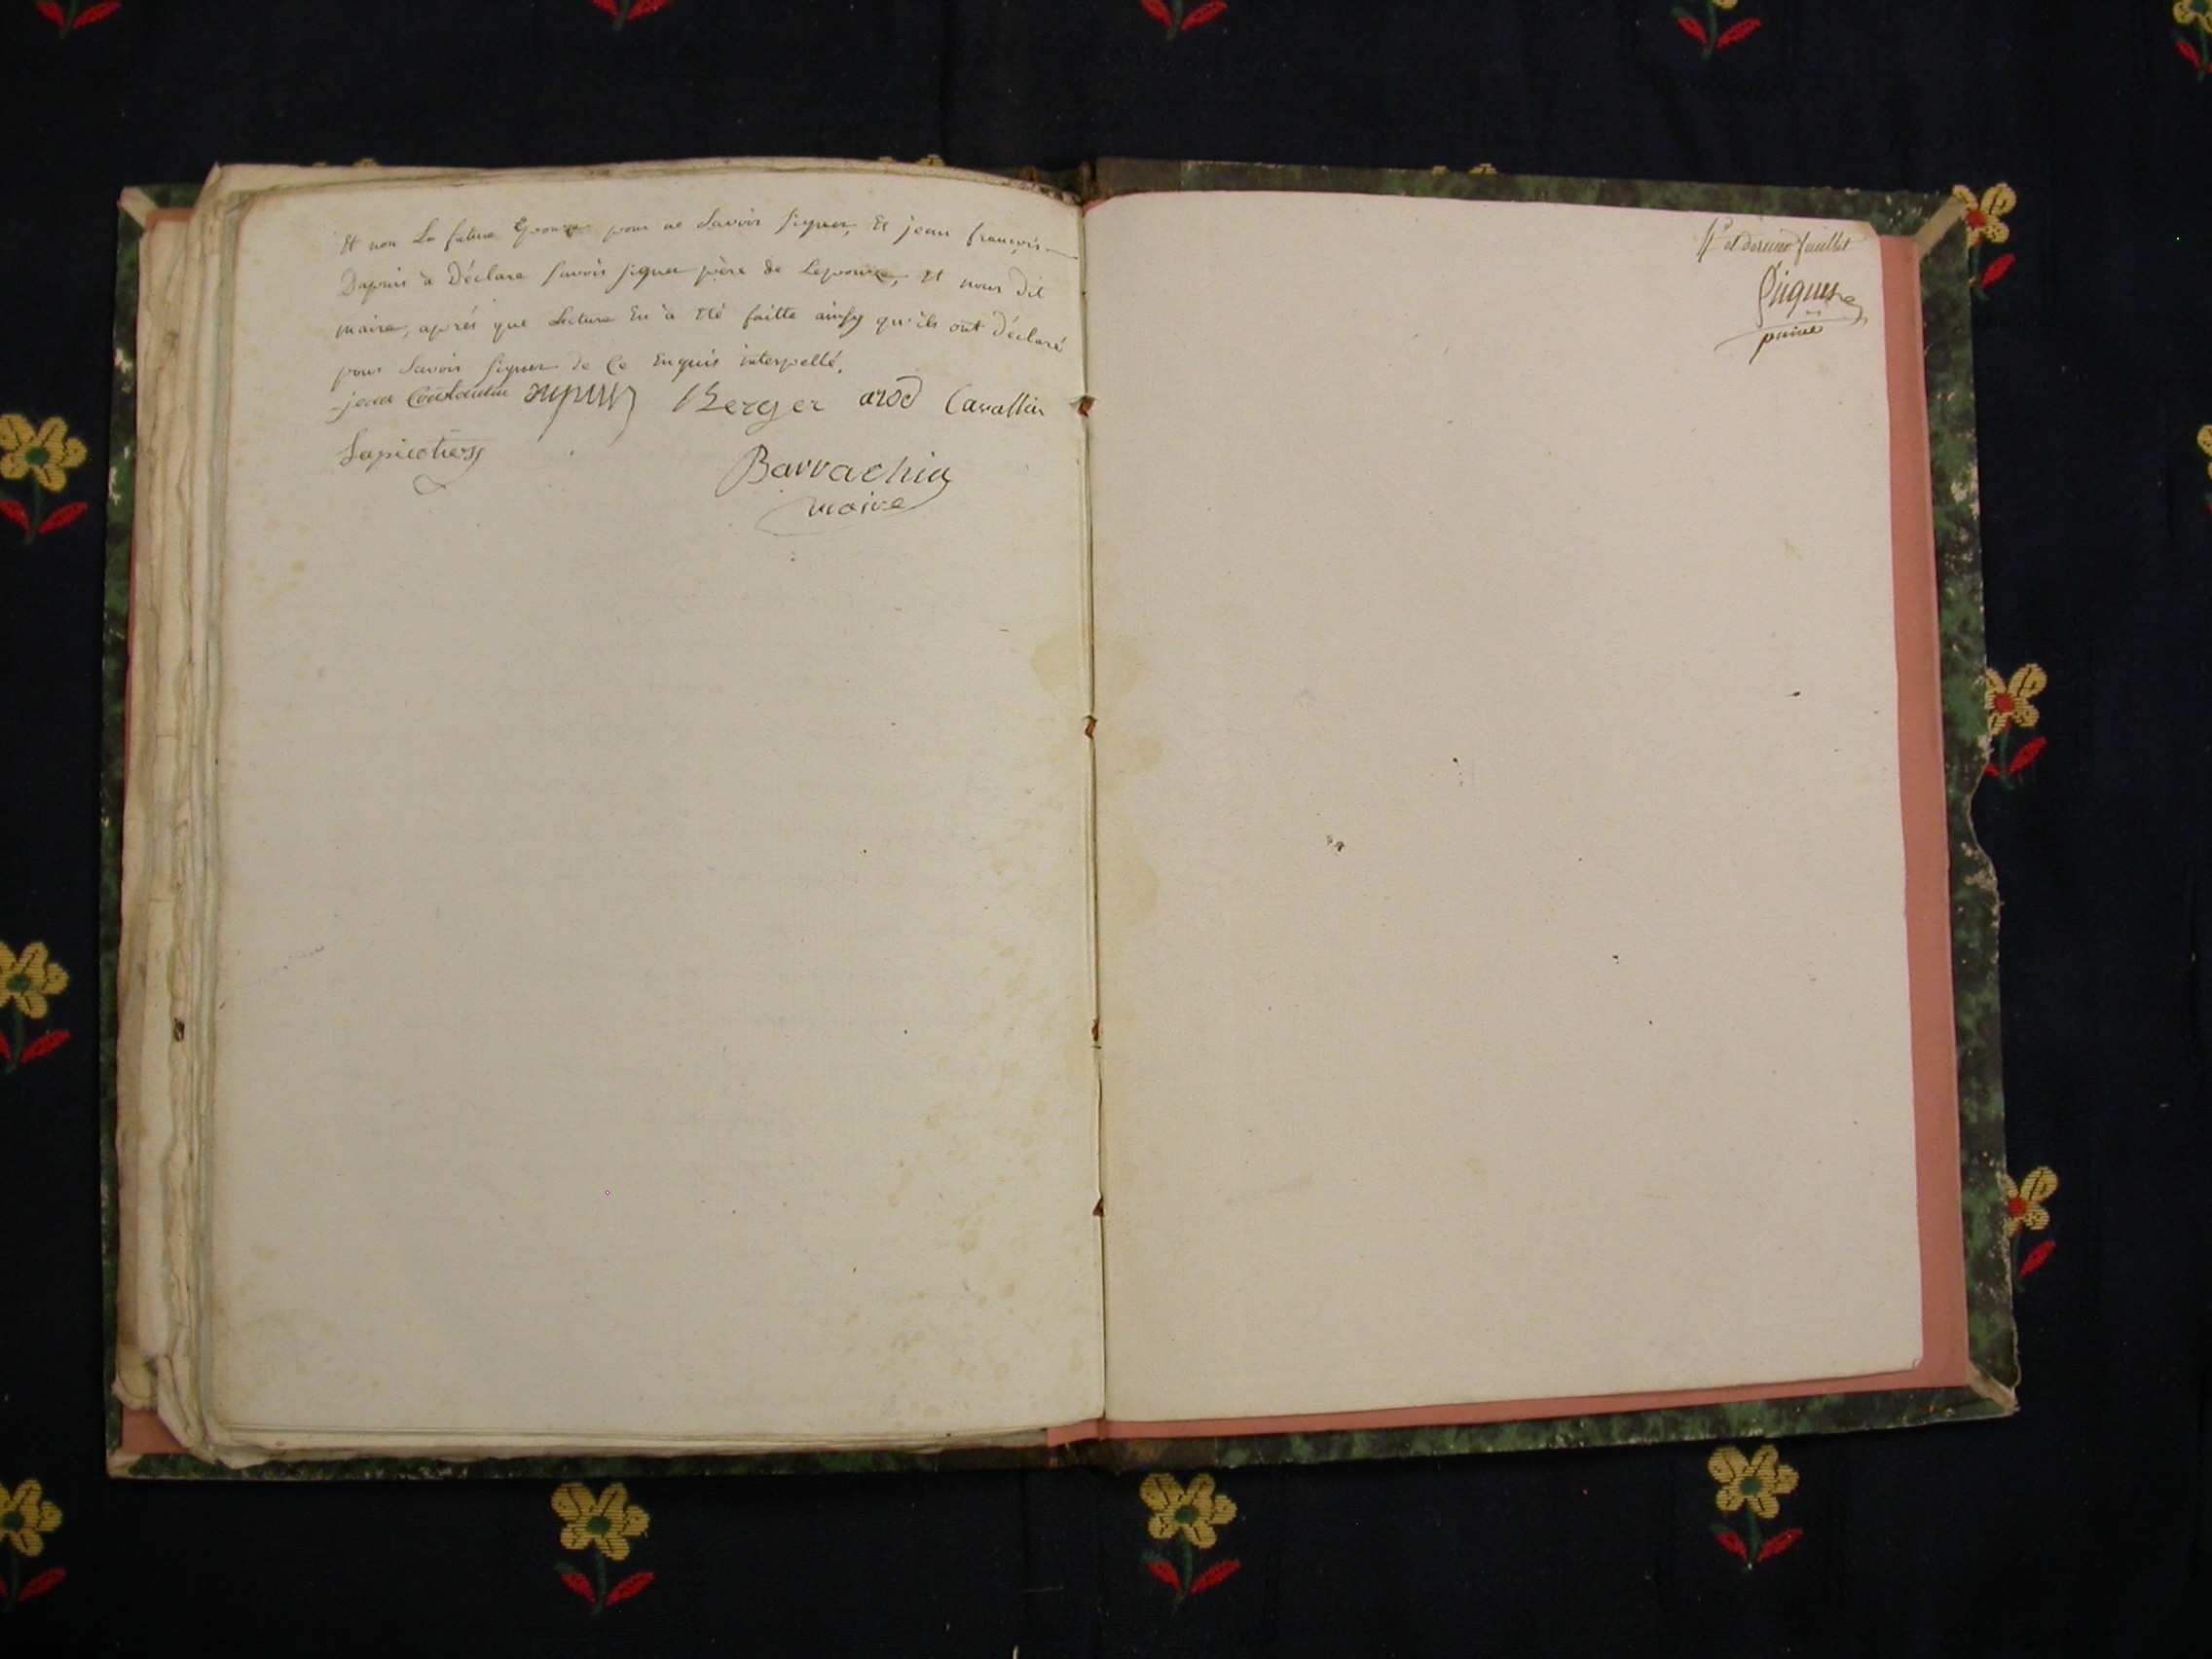 Et non La future Epouze pour ne Savoir signer, Et jean françois
Dupuis à Déclare savoir signer père de Lepouze, Et nous dit
maire, aprés que Lecture En à Eté faitte ainsy qu'ils ont Déclaré
pour Savoir signer de Ce Enquis interpellé.
jean Constantin dupuis Berger arod Cavallin
Lapierre
Barrachin
maire
et dernier feuillet